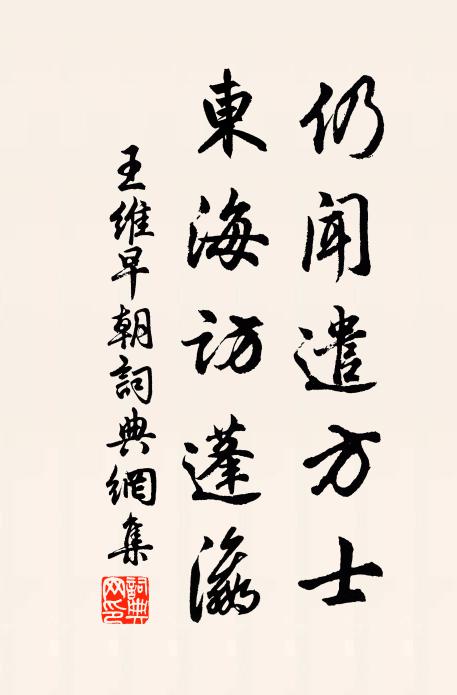 仍聞遣方士
東海訪蓬瀛
王維早朝詞典網集
詞典
網印